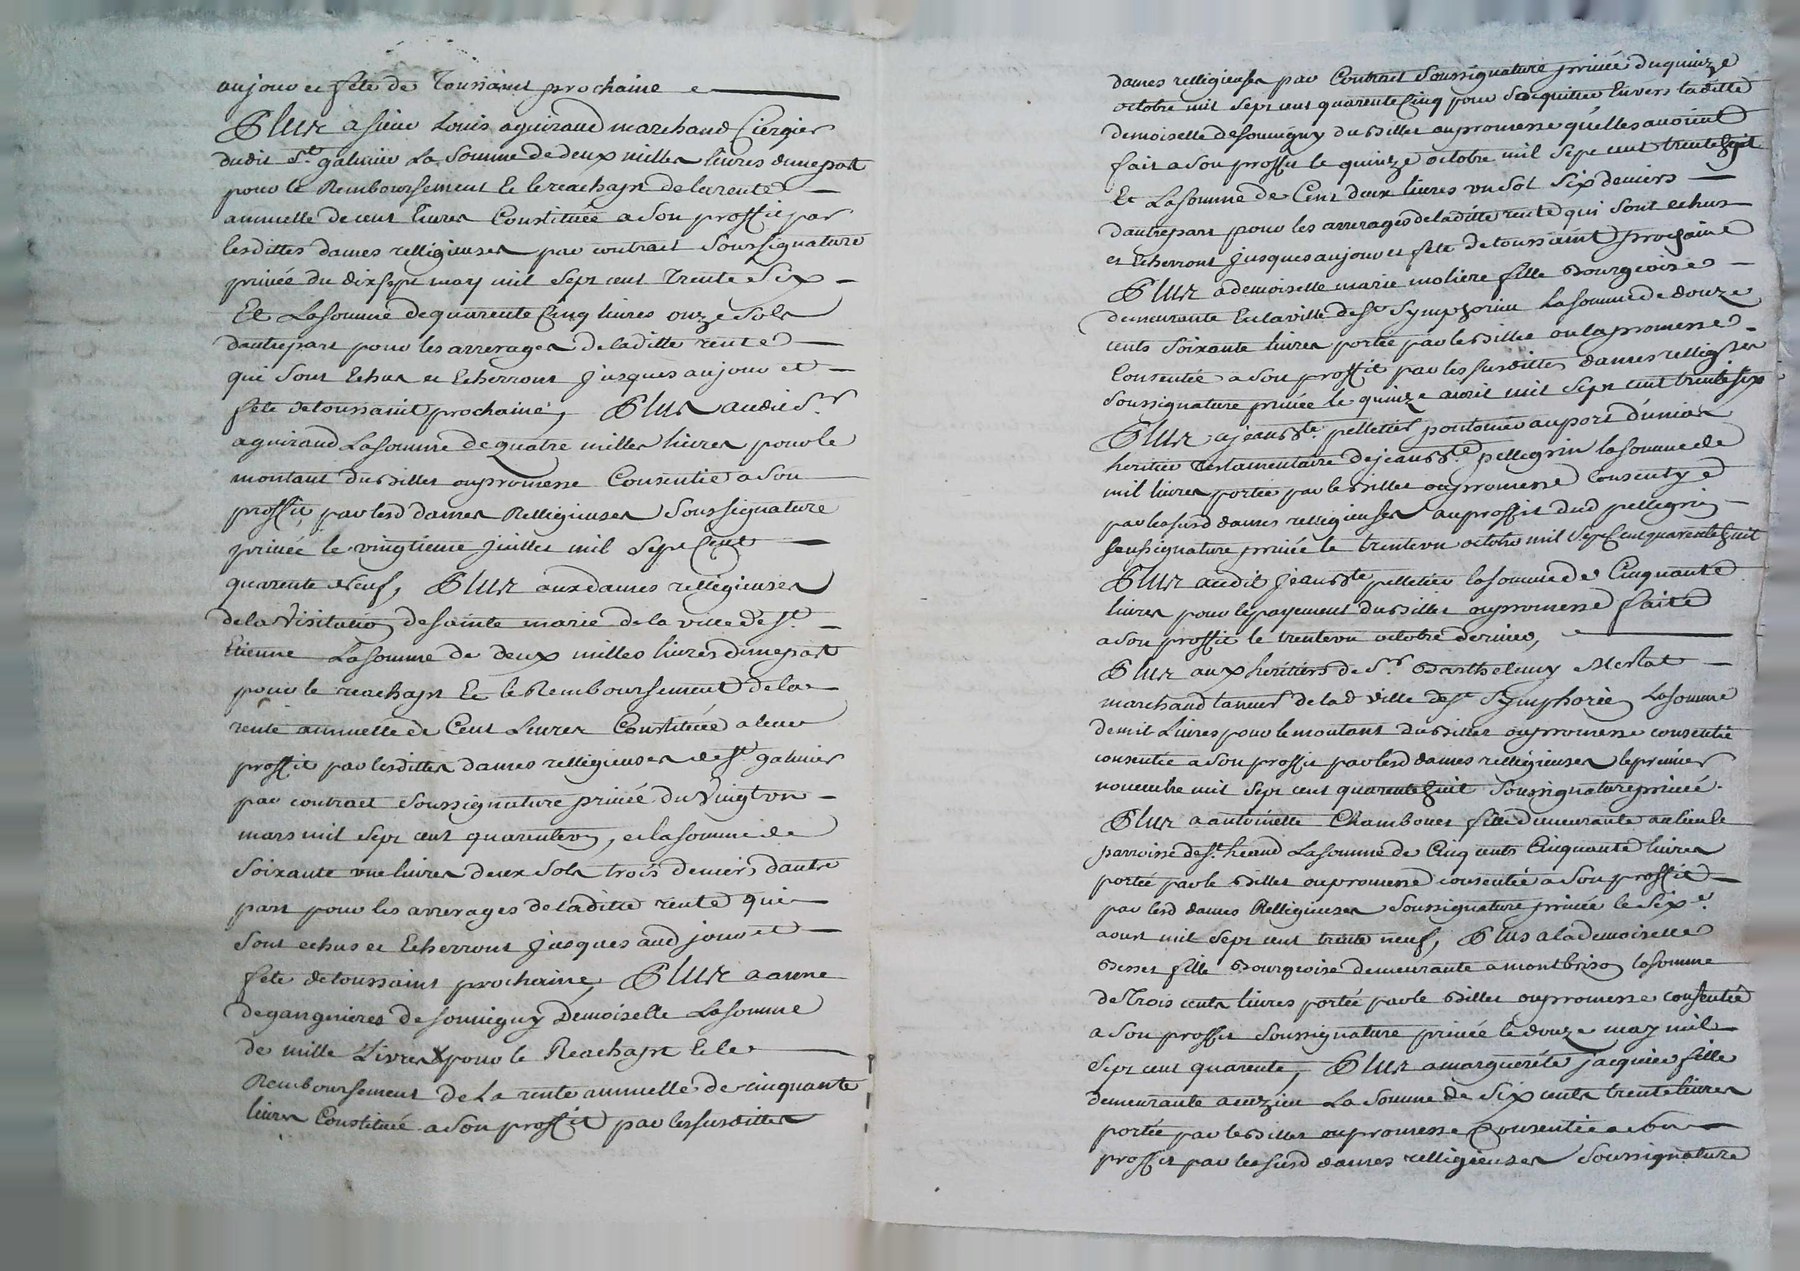 aujour et fête de Toussaint prochaine
Plus a sieur Louis aguiraud marchand Ciergier
dudit St galmier La Somme de deux milles livres dune part
pour le Remboursement Et le reachapt de la rente
annuelle de cent livres Constituée a Son proffit par
lesdittes dames relligieuses par contrait Soussignature
privée du dixsept may mil Sept cent Trente Six
Et La Somme de quarente Cinq livres onze Sols
dautre part pour les arrerages de laditte rente
qui Sont Echus et Echerront Jusques au jour et
fête de toussaint prochaine, Plus audit Sr
aguiraud La Somme de quatre milles livres pour le
montant du Billet ou promesse Consentie a Son
proffit par lesd dames Relligieuses Soussignature
privée le vingtieme Juillet mil Sept Cent
quarente Neuf, Plus aux dames relligieuses
de la Visitation de Sainte marie de la ville de St
Etienne La Somme de deux milles livres dune part
pour le reachapt Et le Remboursement de la
rente annuelle de Cent Livres Constituée a leur
proffit par lesdittes dames relligieuses de St galmier
par contrait Soussignature privée du Vingt un
mars mil Sept cent quarente un, et la Somme de
Soixante une livres deux Sols trois deniers dautre
part pour les arrerages de laditte rente qui
Sont echus et Echerront Jusques aud jour et
fête de toussaint prochaine, Plus a anne
de gangnieres de Souvigny Demoiselle La Somme
de mille Livres pour le Reachapt Et le
Remboursement de La rente annuelle de cinquante
livres Constitué a Son proffit par les susdittes
dames relligieuses par Contrait Soussignature privée du quinze
octobre mil Sept cent quarente Cinq pour Sacquitter Envers laditte
demoiselle de Souvigny du Billet ou promesse quelles avoient
fait a Son proffit le quinze octobre mil Sept cent trente huit
Et La Somme de Cent deux livres un Sol Six deniers
dautre part pour les arrerages de laditte rente qui Sont echus
et Echerront Jusques au jour et fête de toussaint prochaine
Plus a demoiselle marie moliere fille Bourgeoise
demeurante En la ville de St Symphorien La Somme de douze
cents Soixante livres portée par le Billet ou la promesse
Consentie a Son proffit par les susdittes dames relligses
Soussignature privée le quinze avril mil Sept cent trente Six
Plus a jean Bte pelletier pontonier au port
heritier testamentaire de jean Bte pellegrin la Somme de
mil livres portée par le Billet ou promesse Consenty
par les susd dames relligieuses au proffit dud pellegrin
Soussignature privée le trente un octobre mil Sept Cent quarente huit
Plus audit jean Bte pelletier la Somme de Cinquante
livres pour le payement du Billet ou promesse faite
a Son proffit le trente un octobre dernier,
Plus aux heritiers de Sr Barthelemy Merlat
marchand tanneur de lad ville de St Symphorien La Somme
de mil Livres pour le montant du Billet ou promesse consentie
consentie a Son proffit par lesd dames relligieuses le premier
novembre mil Sept cent quarente huit Soussignature privée.
Plus a antoinette Chambouet fille demeurante au lieu et
parroisse de St heand La Somme de Cinq cents Cinquante livres
portée par le Billet ou promesse consentie a Son proffit
par lesd dames Relligieuses Soussignature privée le Sixe
aoust mil Sept cent trente neuf, Plus a la demoiselle
Besset fille Bourgeoise demeurante a montbrison la Somme
de Trois cents livres portée par le Billet ou promesse consentie
a Son proffit Soussignature privée le douze may mil
Sept cent quarente, Plus a marguerite jacquier fille
demeurante a cuzieu La Somme de Six cents trente livres
portée par le Billet ou promesse Consentie a Son
proffit par les susd dames relligieuses Soussignature